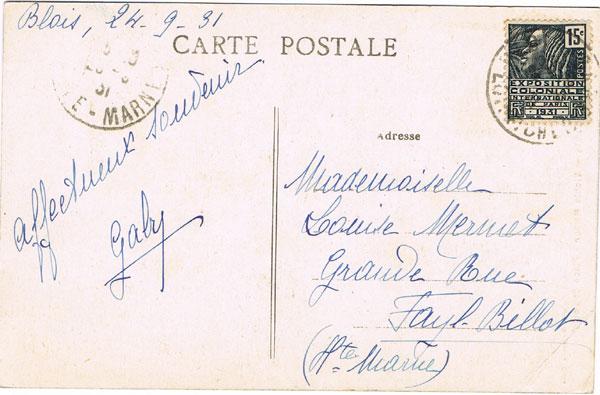 Blois, 24-9-31
CARTE POSTALE
E-MARNE
31
15c
POSTES
EXPOSITION
COLONIALE
INTERNATIONALE
DE PARIS
1931
Adresse
Affectueux souvenir
Gaby
Mademoiselle
Louise Mermet
Grande Rue
Fayl-Billot
(Hte Marne)